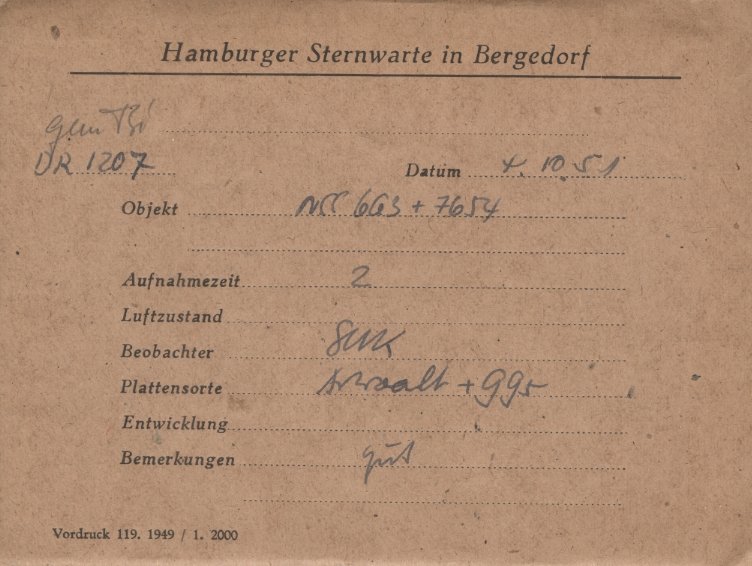 Hamburger Sternwarte in Bergedorf
DR 1207
Datum 4. 10 51
Objekt NGC 663 + 7654
Aufnahmezeit 2
Luftzustand
Beobachter
Plattensorte + GG5
Entwicklung
Bemerkungen gut
Vordruck 119. 1949 / 1. 2000